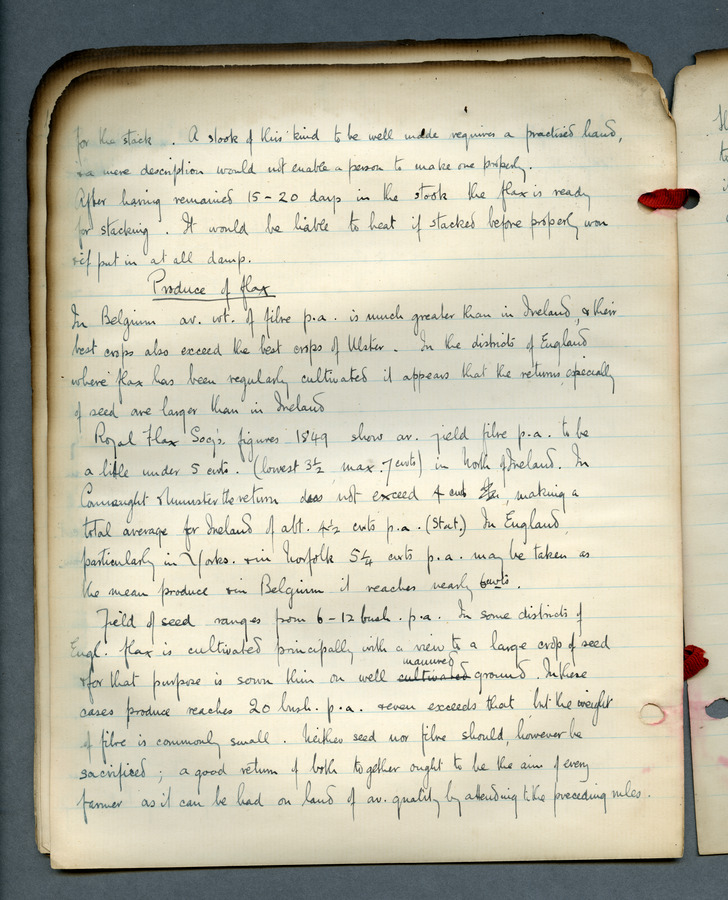 for the stack. A stook of this kind to be well made requires a practised hand,
& a mere description would not enable a person to make one properly.
After having remained 15-20 days in the stook the flax is ready
for stacking. It would be liable to heat if stacked before properly won
& if put in at all damp.
Produce of flax
In Belgium av. wt. of fibre p.a. is much greater than in Ireland, & their
best crops also exceed the best crops of Ulster. In the districts of England
where flax has been regularly cultivated it appears that the returns, especially
of seed are larger than in Ireland
Royal Flax Socy's. figures 1849 show av. yield fibre p.a. to be
a little under 5 cwts. (lowest 3½ max. 7 cwts) in North of Ireland. In
Connaught & Munster the return does not exceed 4 cwts, making a
total average for Ireland of abt. 4½ cwts p.a. (Stat.) In England,
particularly in S Yorks. & in Norfolk 5¼ cwts p.a. may be taken as
the mean produce & in Belgium it reaches nearly 6 cwts.
Yield of seed ranges from 6-12 bush. p.a. In some districts of
Engl. flax is cultivated principally with a view to a large crop of seed
manured
& for that purpose is sown thin on well cultivated ground. In these
cases produce reaches 20 bush. p.a. & even exceeds that but the weight
of fibre is commonly small. Neither seed nor fibre should, however be
sacrificed; a good return of both together ought to be the aim of every
farmer as it can be had on land of av. quality by attending to the preceding rules.